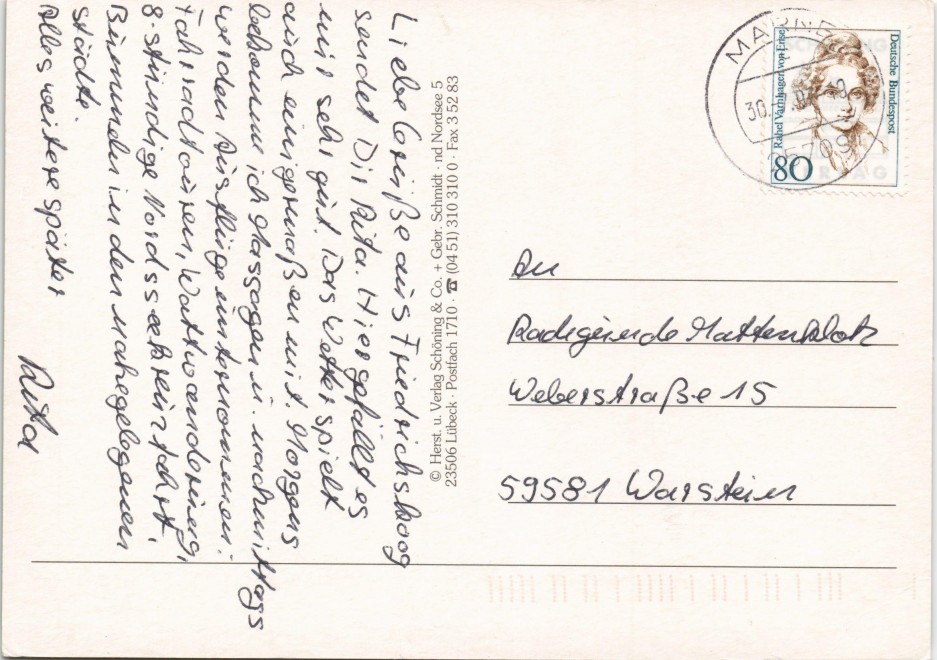 Liebe Grüße aus Friedrichskoog
sendet Dir Rita. Hier gefällt es
mir sehr gut. Das Wetter spielt
auch einigermaßen mit. Morgens
bekomme ich Massagen u. nachmittags
werden Ausflüge unternommen:
Fahrradtouren, Wattwanderung,
8-stündige Nordseekreuzfahrt,
Bummeln in den nahegelegenen
Städte.
Alles weitere später
Rita
© Herst. u. Verlag Schöning & Co. + Gebr. Schmidt · nd Nordsee 5
23506 Lübeck · Postfach 1710 · ☎ (04 51) 310 310 0 · Fax 3 52 83
MARNE
30.
25709
Deutsche Bundespost
Rahel Varnhagen von Ense
80
An
Radigemeinde Mattenklotz
Weberstraße 15
59581 Warstein